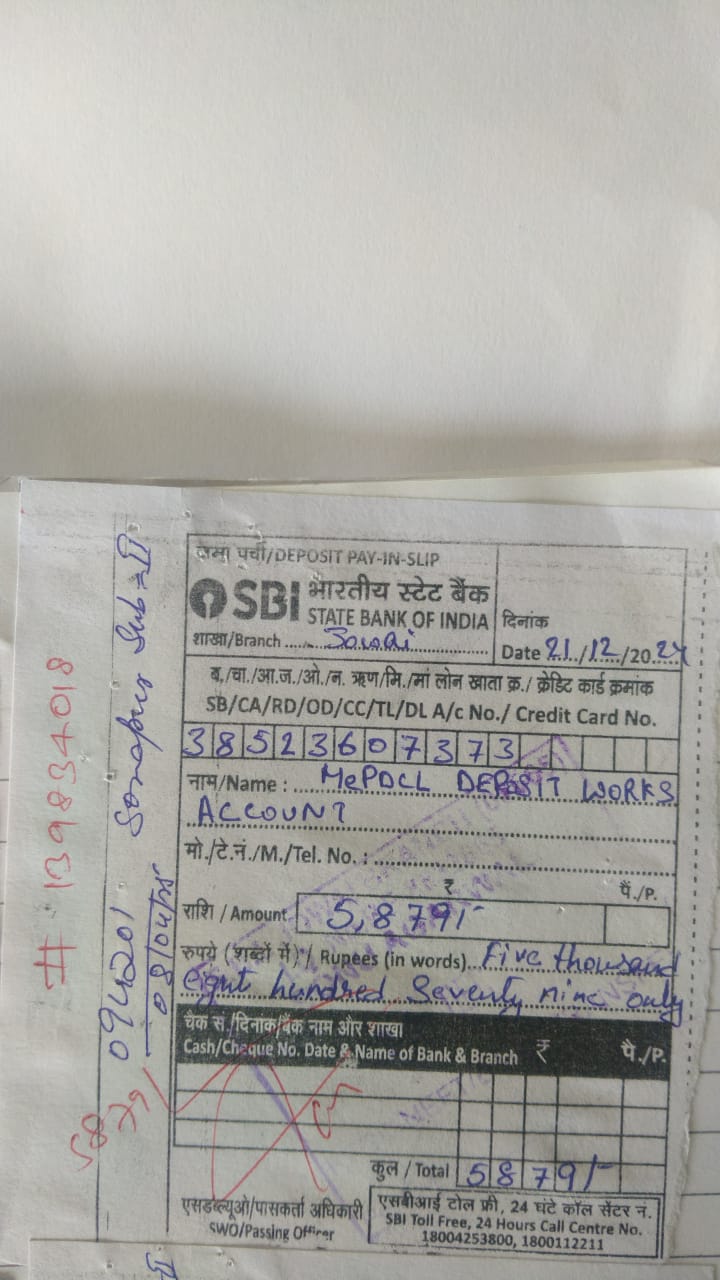 जमा पर्ची/DEPOSIT PAY-IN-SLIP
SBI भारतीय स्टेट बैंक
STATE BANK OF INDIA
शाखा/Branch ...... Jowai
दिनांक
Date 21/12/2024
ब./चा./आ.ज./ओ./न. ऋण/मि./मां लोन खाता क्र./ क्रेडिट कार्ड क्रमांक
SB/CA/RD/OD/CC/TL/DL A/c No./ Credit Card No.
38523607373
नाम/Name : MePDCL DEPOSIT WORKS
ACCOUNT
मो./टे.नं./M./Tel. No. :
₹ पैं./P.
राशि / Amount 5,879/-
रुपये (शब्दों में) / Rupees (in words) Five thousand
eight hundred Seventy nine only
चैक सं./दिनांक/बैंक नाम और शाखा
Cash/Cheque No. Date & Name of Bank & Branch ₹ पै./P.
कुल / Total 5879/-
एसडब्ल्यूओ/पासकर्ता अधिकारी
SWO/Passing Officer
एसबीआई टोल फ्री, 24 घंटे कॉल सेंटर नं.
SBI Toll Free, 24 Hours Call Centre No.
18004253800, 1800112211
# 139834018
094201 Sonapur Sub=II
08/04/25
5879/